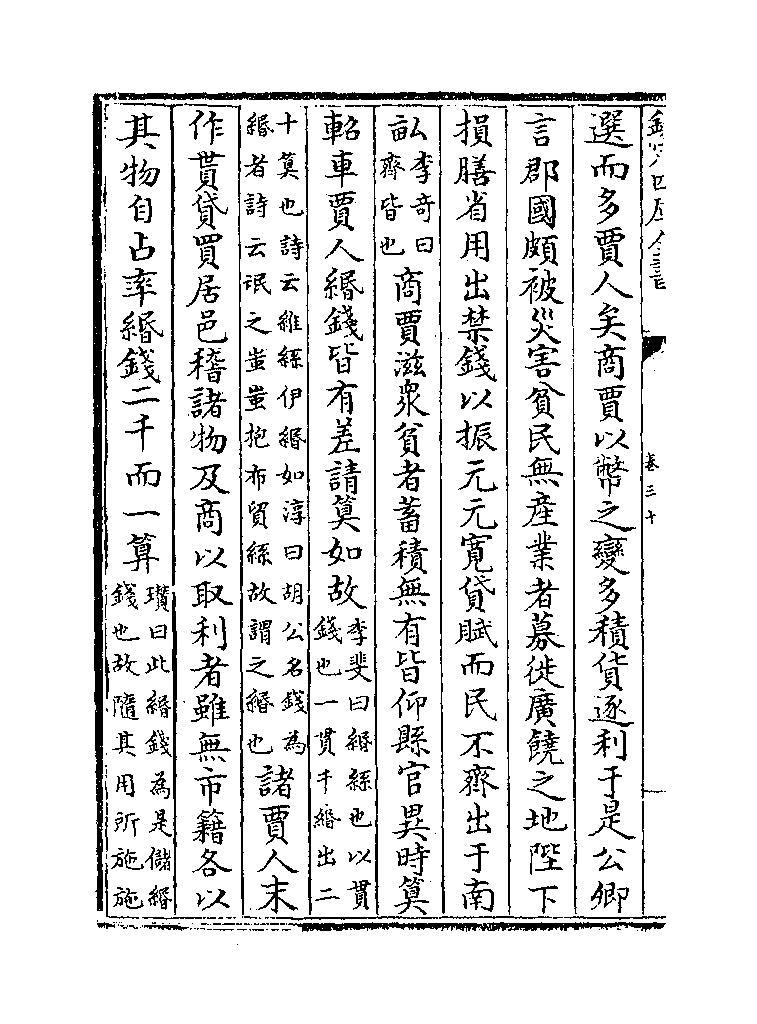 欽定四庫全書
卷三十
選而多賈人矣商賈以幣之變多積貨逐利于是公卿
言郡國頗被災害貧民無産業者募徙廣饒之地陛下
損膳省用出禁錢以振元元寛貸賦而民不齊出于南
畝李奇曰齊皆也商賈滋衆貧者蓄積無有皆仰縣官異時算
軺車賈人緡錢皆有差請算如故李斐曰緡絲也以貫錢也一貫千緡出二
十算也詩云維絲伊緡如淳曰胡公名錢為緡者詩云氓之蚩蚩抱布貿絲故謂之緡也諸賈人末
作貰貸買居邑稽諸物及商以取利者雖無市籍各以
其物自占率緡錢二千而一算瓚曰此緡錢為是儲緡錢也故隨其用所施施